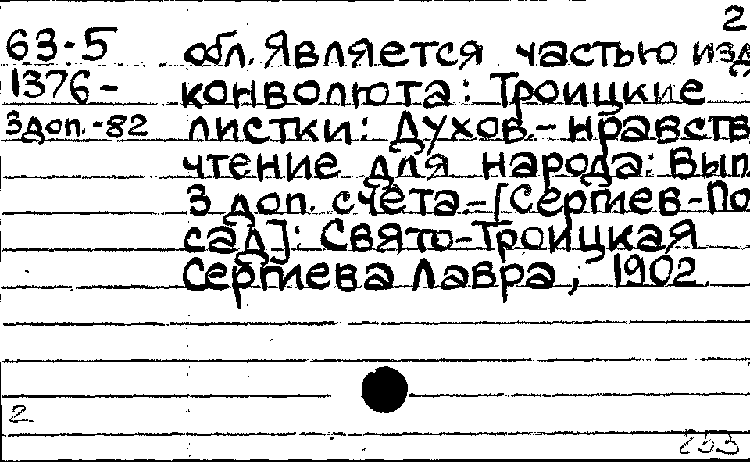 2
63-5 обл. Является частью изд
1376- конволюта: Троицкие
3доп.-82 листки: Духов.-нравств
чтение для народа: Вып
3 доп. счета.-[Сергиев-По
сад]: Свято-Троицкая
Сергиева Лавра, 1902.
2
253